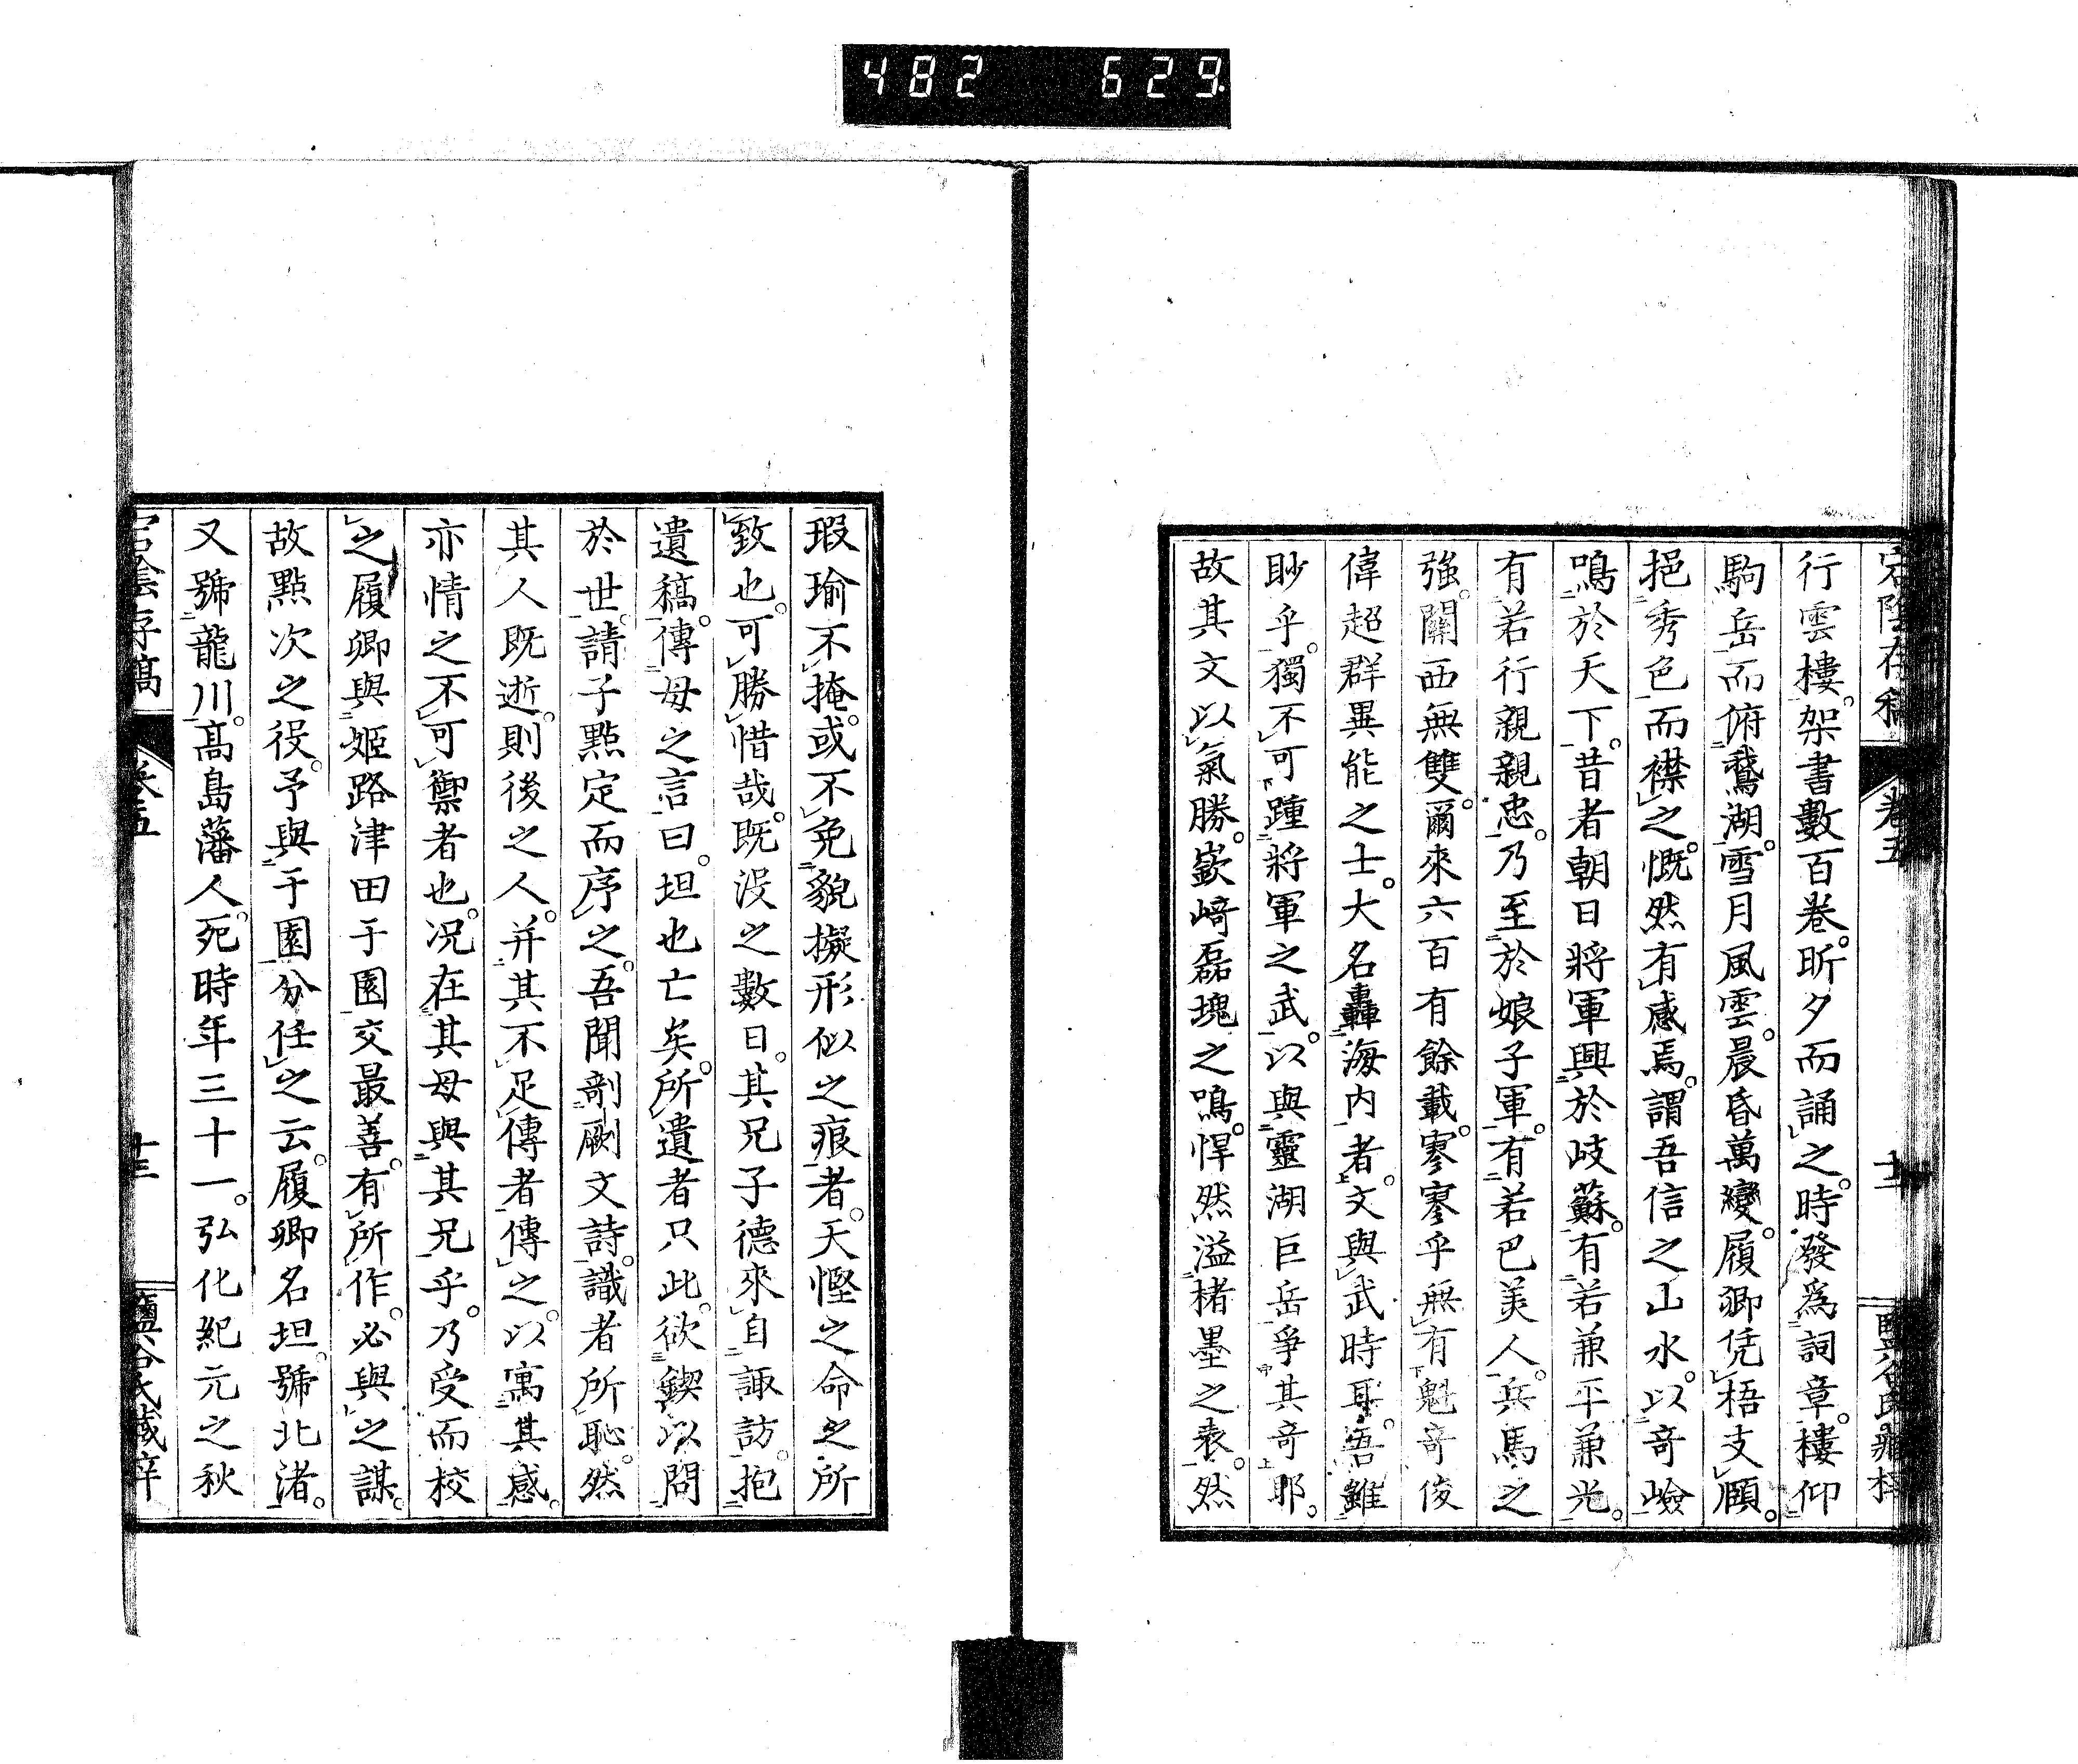 482 629.
宕陰存稿 卷五 十二 鹽谷氏藏梓
行雲樓。架書數百卷。昕夕而誦之。時發爲詞章。樓仰
駒岳而俯鵞湖。雪月風雲。晨昏萬變。履卿凭梧支頤。
挹秀色而襟之。慨然有感焉。謂吾信之山水。以奇嶮
鳴於天下。昔者朝日將軍興於岐蘇。有若兼平兼光。
有若行親親忠。乃至於娘子軍。有若巴美人。兵馬之
強。關西無雙。爾來六百有餘載。寥寥乎無有魁奇俊
偉超群異能之士。大名轟海内者。文與武時耳。吾雖
眇乎。獨不可踵將軍之武。以與靈湖巨岳爭其奇耶。
故其文以氣勝。嶔﨑磊塊之鳴。悍然溢楮墨之表。然
瑕瑜不掩。或不免貌擬形似之痕者。天慳之命之所
致也。可勝惜哉。既沒之數日。其兄子德來自諏訪。抱
遺稿。傳母之言曰。坦也亡矣。所遺者只此。欲鍥以問
於世。請子點定而序之。吾聞剞劂文詩。識者所恥。然
其人既逝。則後之人。并其不足傳者傳之。以寓其感。
亦情之不可禦者也。况在其母與其兄乎。乃受而校
之。履卿與姫路津田于園交最善。有所作。必與之謀。
故點次之役。予與于園分任之云。履卿名坦。號北渚。
又號龍川。高島藩人。死時年三十一。弘化紀元之秋
宕陰存稿 卷五 十三 鹽谷氏藏梓